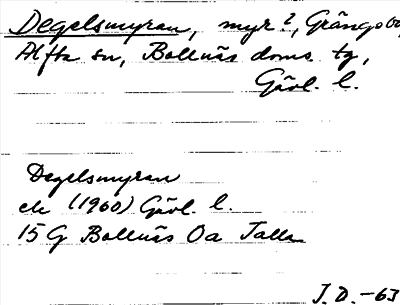 Degelsmyran, myr?, Grängsbo,
Alfta sn, Bollnäs doms. tg,
Gävl. l.
Degelsmyran
ek (1960) Gävl. l.
15 G Bollnäs 0a Talla
J. D. -63